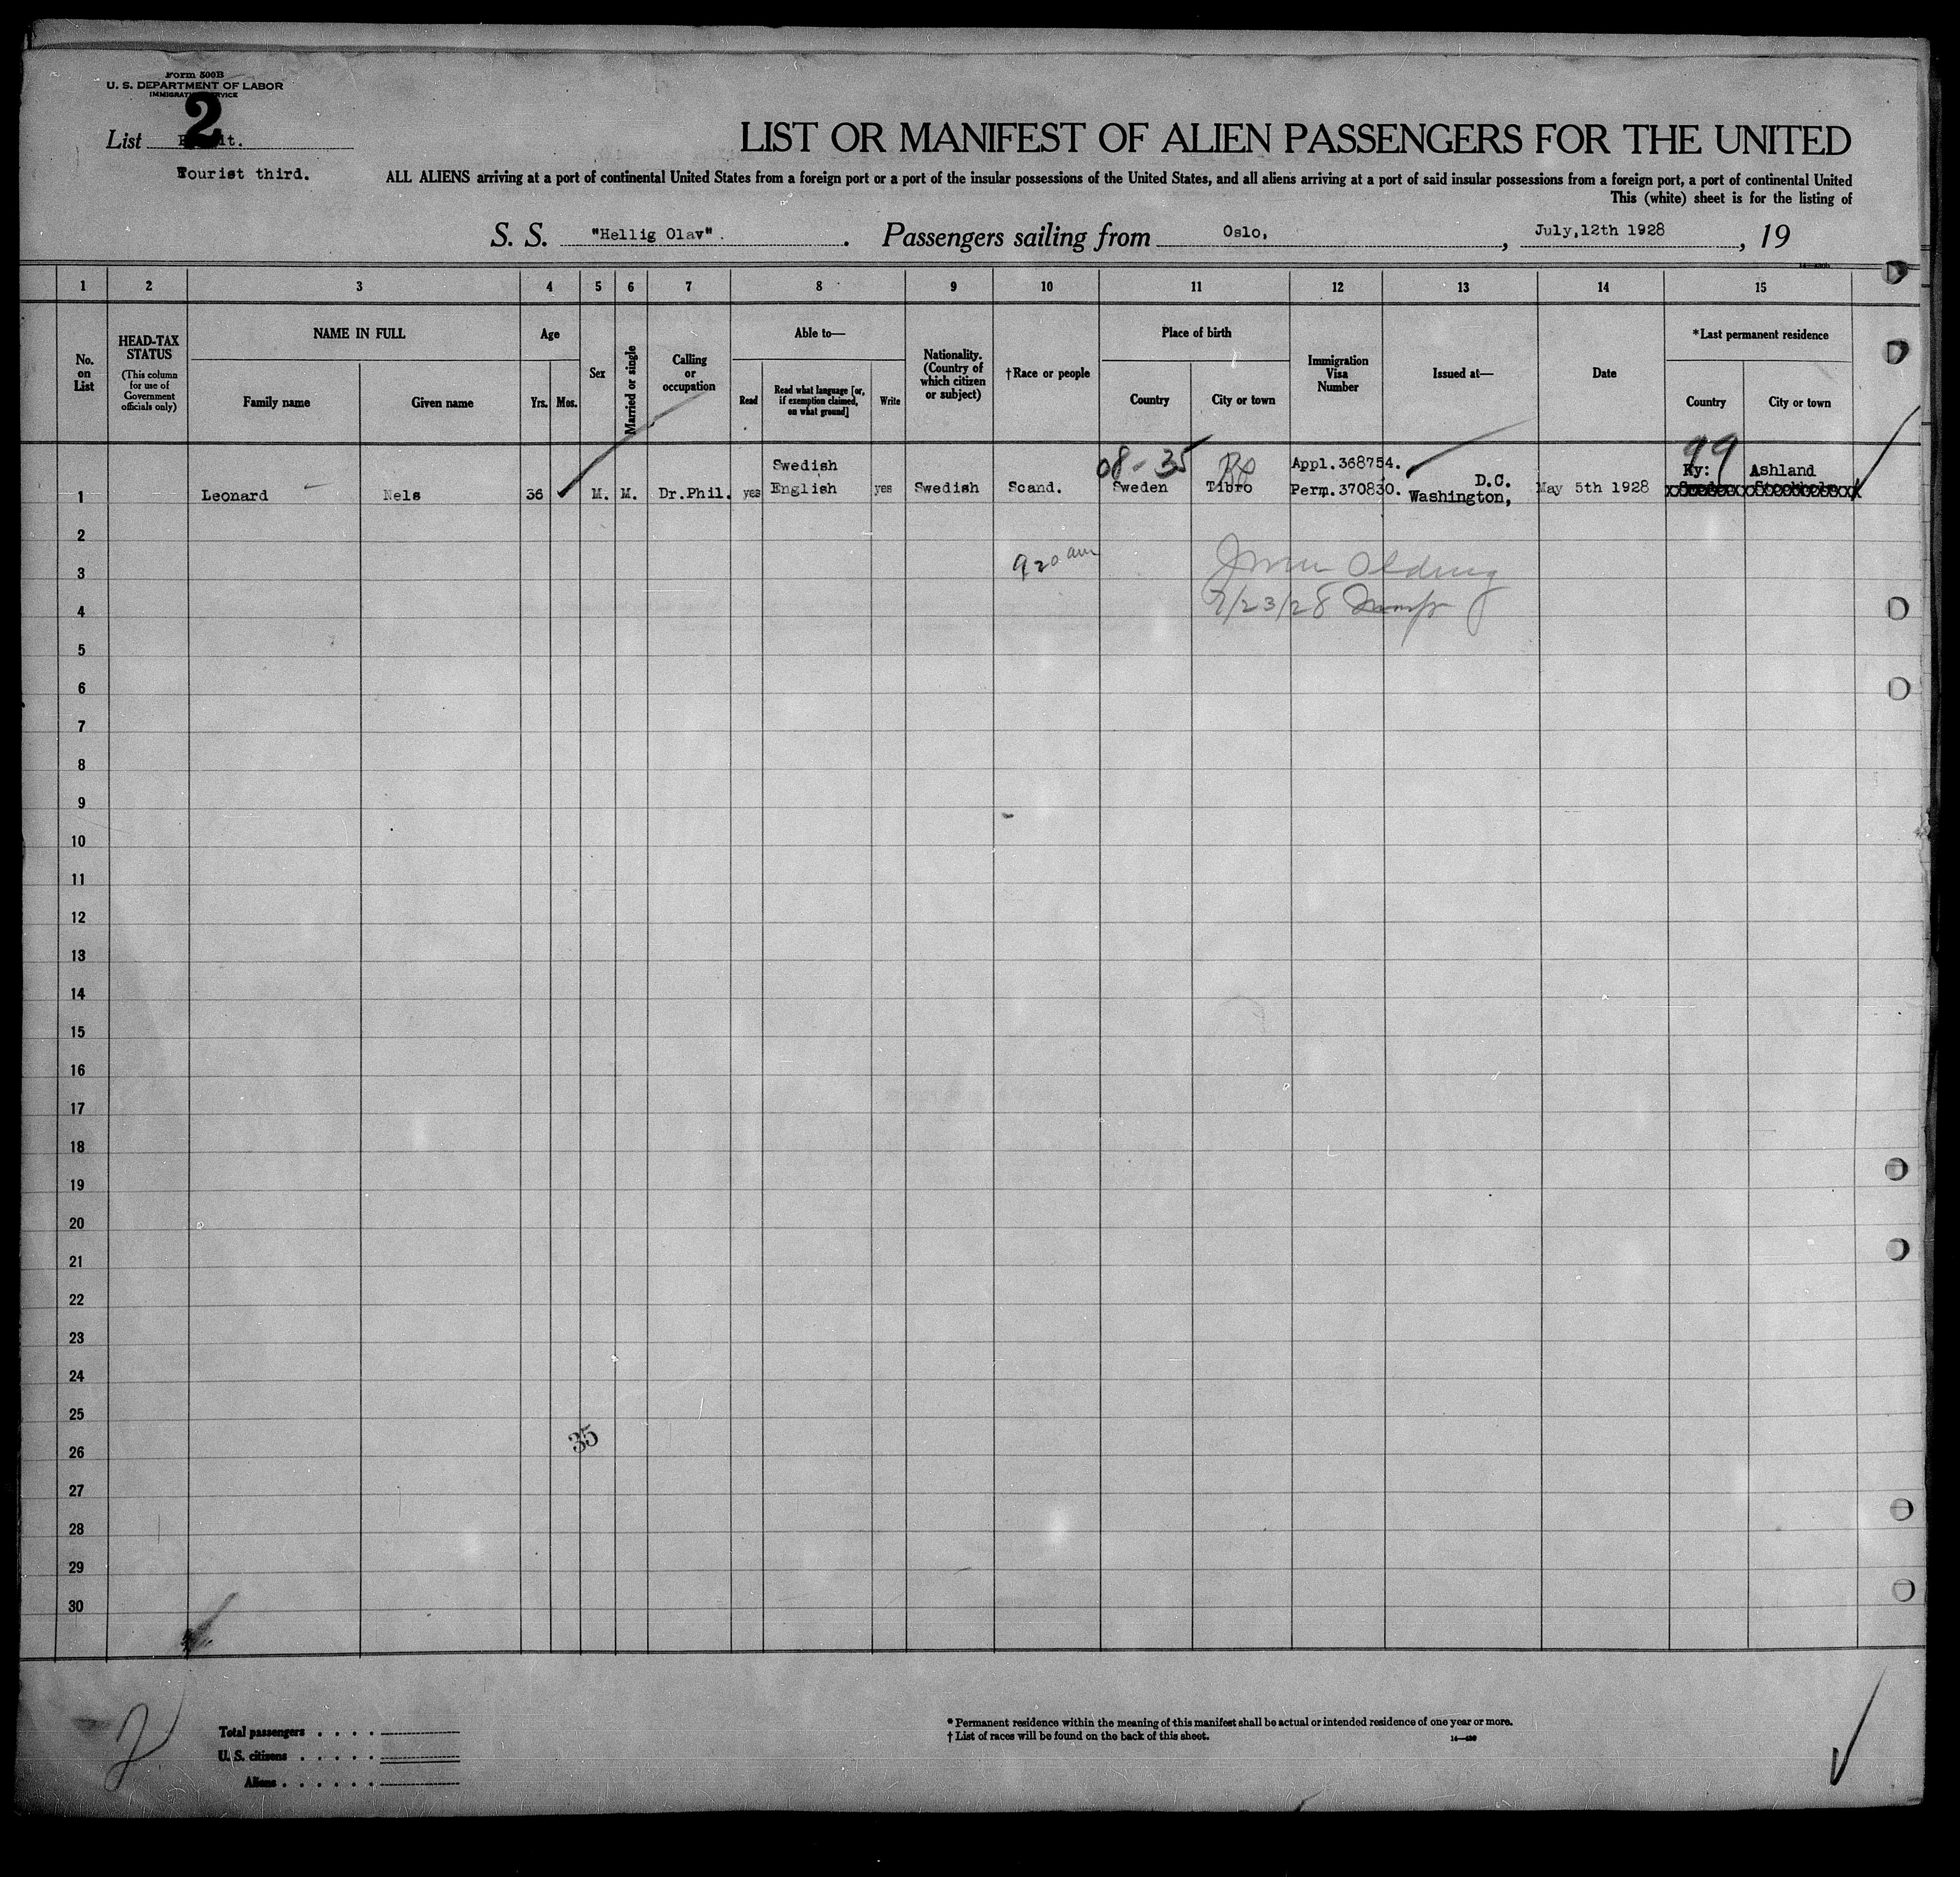 Form 500B
U. S. DEPARTMENT OF LABOR
IMMIGRATION SERVICE
2
List
Tourist third.
LIST OR MANIFEST OF ALIEN PASSENGERS FOR THE UNITED
ALL ALIENS arriving at a port of continental United States from a foreign port or a port of the insular possessions of the United States, and all aliens arriving at a port of said insular possessions from a foreign port, a port of continental United
This (white) sheet is for the listing of
S. S. "Hellig Olav". Passengers sailing from Oslo, , July,12th 1928 , 19
1 2 3 4 5 6 7 8 9 10 11 12 13 14 15
No. on List
HEAD-TAX STATUS
(This column for use of Government officials only)
NAME IN FULL
Family name
Given name
Age
Yrs.
Mos.
Sex
Married or single
Calling or occupation
Able to—
Read
Read what language [or, if exemption claimed, on what ground]
Write
Nationality. (Country of which citizen or subject)
†Race or people
Place of birth
Country
City or town
Immigration Visa Number
Issued at—
Date
*Last permanent residence
Country
City or town
1 Leonard Nels 36 M. M. Dr.Phil. yes Swedish English yes Swedish Scand. 08-35 Sweden Tibro Appl.368754. Perm.370830. D.C. Washington, May 5th 1928 99 Ky: Ashland
2
3 9 20 am
4 7/23/28
5
6
7
8
9
10
11
12
13
14
15
16
17
18
19
20
21
22
23
24
25
35
26
27
28
29
30
2
Total passengers . . . .
U. S. citizens . . . . .
Aliens . . . . . .
* Permanent residence within the meaning of this manifest shall be actual or intended residence of one year or more.
† List of races will be found on the back of this sheet.